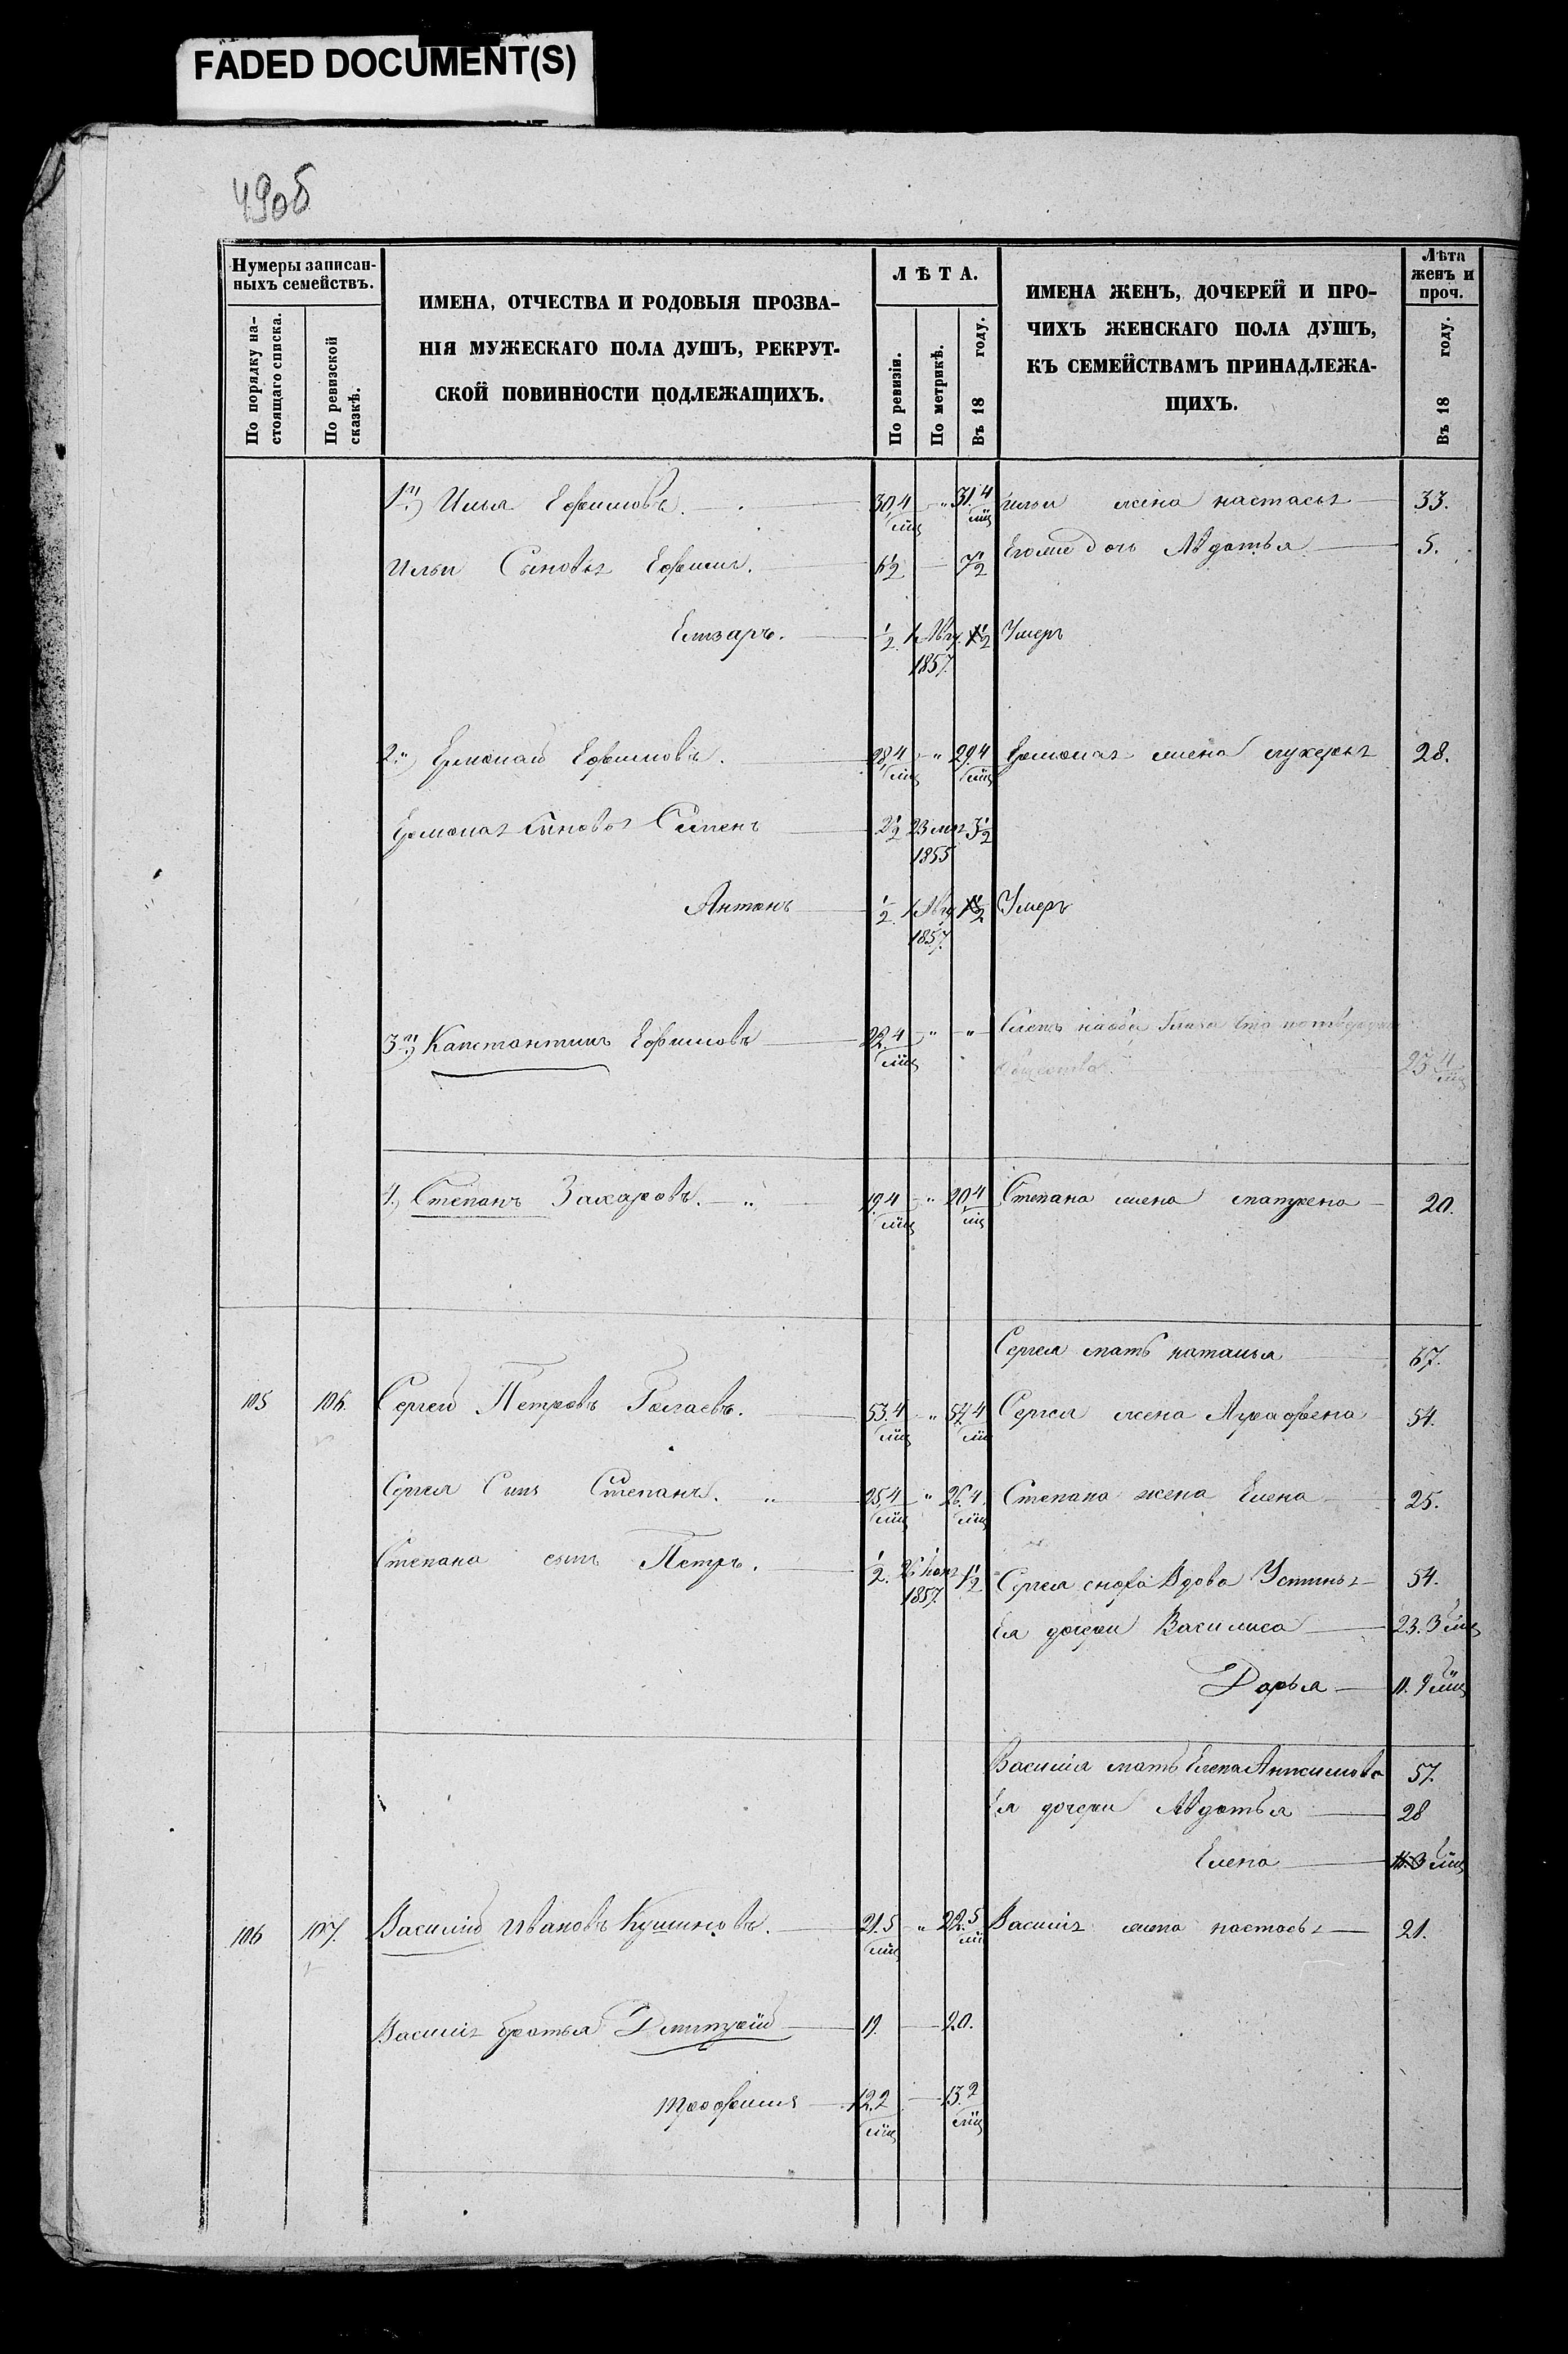 FADED DOCUMENT(S)
490б
Нумеры записан-
ныхъ семействъ.
По порядку на-
стоящаго списка.
По ревизской
сказкѣ.
ИМЕНА, ОТЧЕСТВА И РОДОВЫЯ ПРОЗВА-
НІЯ МУЖЕСКАГО ПОЛА ДУШЪ, РЕКРУТ-
СКОЙ ПОВИННОСТИ ПОДЛЕЖАЩИХЪ.
ЛѢТА.
По ревизіи.
По метрикѣ.
Въ 18 году.
ИМЕНА ЖЕНЪ, ДОЧЕРЕЙ И ПРО-
ЧИХЪ ЖЕНСКАГО ПОЛА ДУШЪ,
КЪ СЕМЕЙСТВАМЪ ПРИНАДЛЕЖА-
ЩИХЪ.
Лѣта
женъ и
проч.
Въ 18 году.
1й) Илья Ефимовъ. 30,4 мц " 31.4 мц Ильи жена настасья 33.
Ильи Сыновья Ефимъ. 6½ 7½ дочь Авдотья 5.
Елизаръ. ½ 1 Авгу. 1½ Умеръ
1857.
2й) Ермолай Ефимовъ. 28,4 мц " 29.4 мц Ермолая жена лукерья 28.
Ермолая сыновья Семенъ 2½ 23 3½
1855
Антонъ ½ 1 Авгу 1½ Умеръ
1857.
3й) Капстантинъ Ефимовъ 22.4 мц " "
23 4 мц
4.) Степанъ Захаровъ. " 19.4 мц " 20.4 мц Степана жена матрена 20.
Сергея мать наталья 67.
105 106. Сергей Петровъ 53.4 мц " 54.4 мц Сергея жена Аграфена 54.
Сергея Сынъ Степанъ. " 25.4 мц " 26.4 мц Степана жена Елена 25.
Степана сынъ Петръ. ½. 26 1½
1857. Сергея сноха Вдова Устинья 54.
Ея дочери Василиса 23.3 мц
Дарья 11.9 мц
Василія мать Елена Анисимова 57.
Ея дочери Авдотья 28
Елена 3 мц
106 107. Василій Ивановъ 21.5 мц " 22.5 мц Василія жена настасья 21.
Василія братья Дмитрій 19. 20.
трофимъ 12.2 мц 13.2 мц